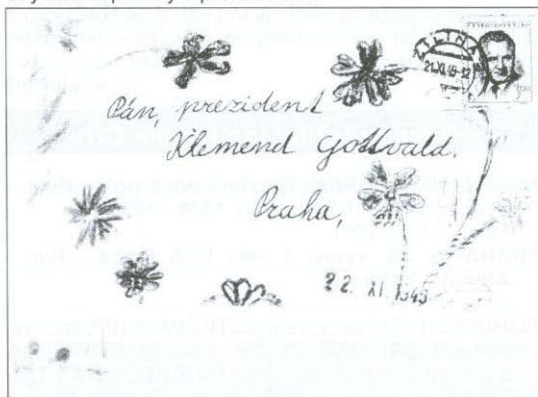 ŽILINA
21.XI.49-12
Pán, prezident
Klemend Gottvald.
Praha,
22. XI. 1949